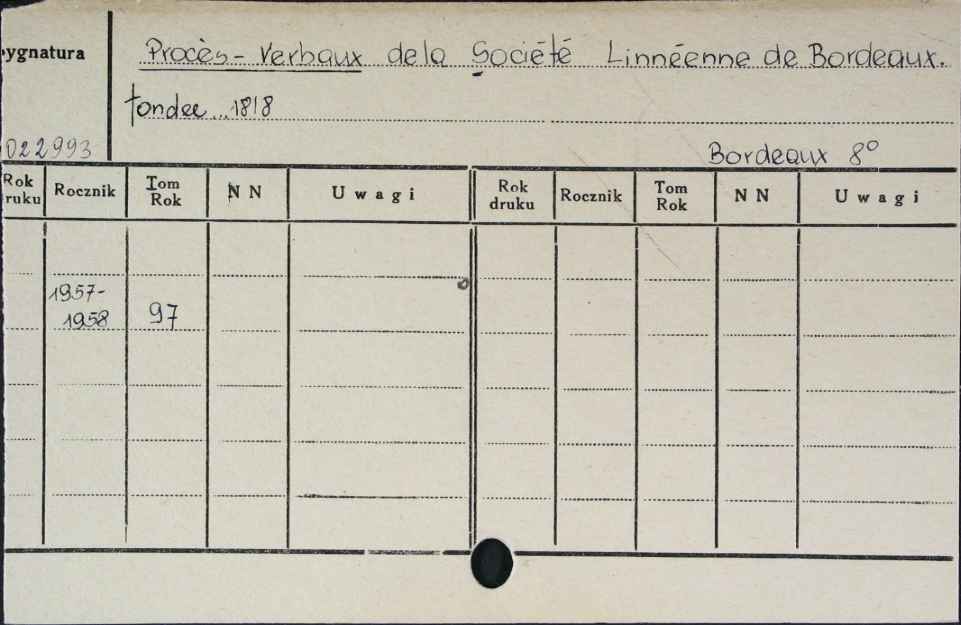 ygnatura
Procès-Verbaux dela Société Linnéenne de Bordeaux.
fondee 1818
022993
Bordeaux 8°
Rok druku Rocznik Tom Rok NN Uwagi Rok druku Rocznik Tom Rok NN Uwagi
1957-
1958 97